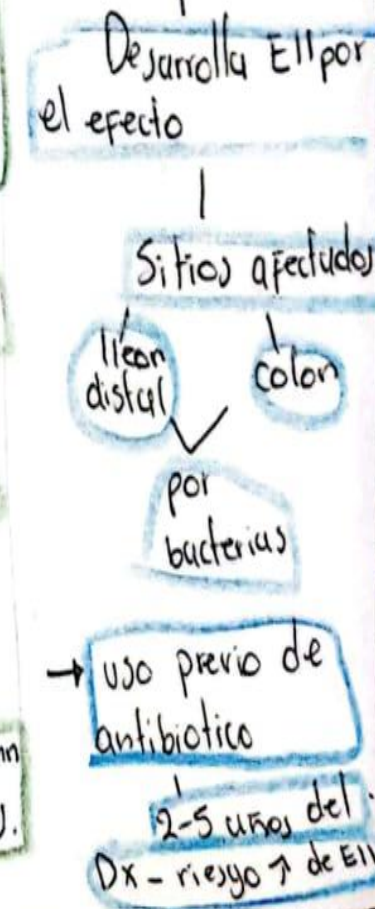 Desarrolla EII por
el efecto
Sitios afectados
Ileon
distal
colon
por
bacterias
→ uso previo de
antibiotico
2-5 años del
Dx - riesgo ↑ de EII